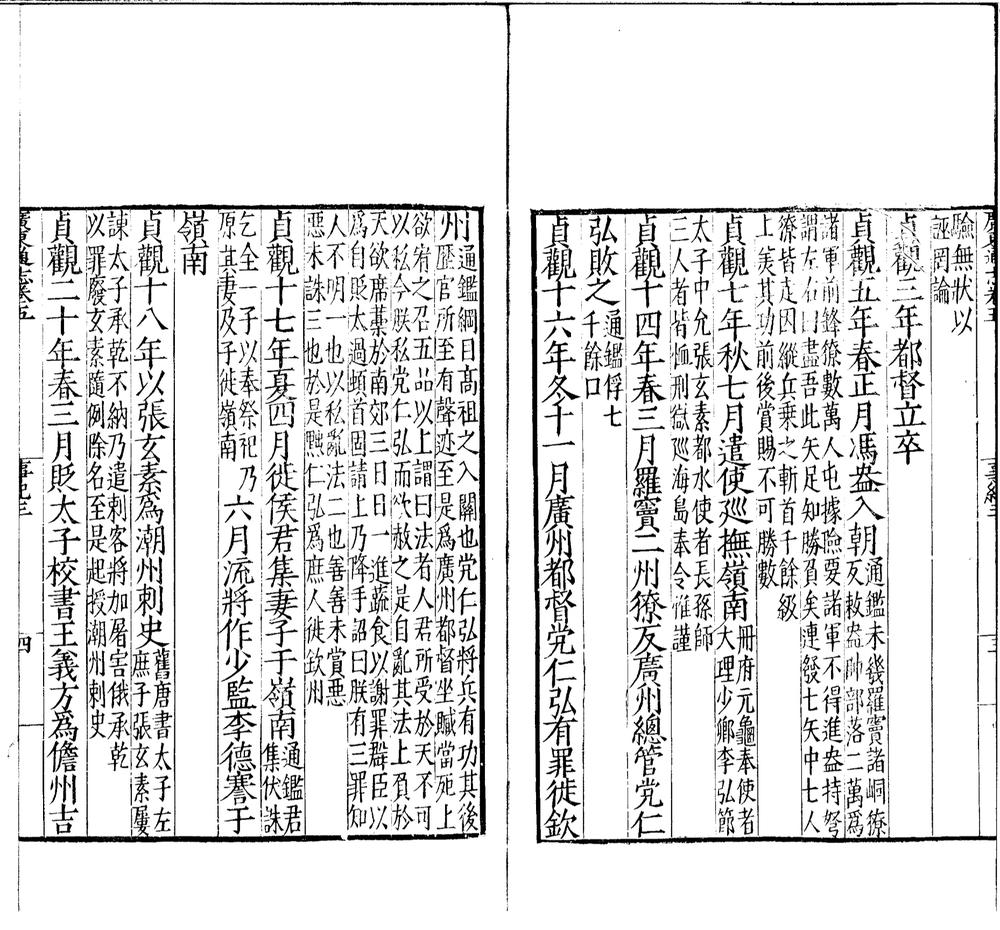 驗無狀以
誣罔論
貞觀三年都督立卒
貞觀五年春正月馮盎入朝通鑑未幾羅竇諸峒獠
反敕盎帥部落二萬爲
諸軍前鋒獠數萬人屯據險要諸軍不得進盎持弩
謂左右曰盡吾此矢足知勝負矣連發七矢中七人
獠皆走因縱兵乗之斬首千餘級
上美其功前後賞賜不可勝數
貞觀七年秋七月遣使廵撫嶺南冊府元龜奉使者
大理少卿李弘節
太子中允張玄素都水使者長孫師
三人者皆恤刑獄廵海島奉令惟謹
貞觀十四年春三月羅竇二州獠反廣州總管党仁
弘敗之通鑑俘七
千餘口
貞觀十六年冬十一月廣州都督党仁弘有罪徙欽
州通鑑綱目高祖之入關也党仁弘將兵有功其後
歷官所至有聲迹至是爲廣州都督坐贓當死上
欲宥之召五品以上謂曰法者人君所受於天不可
以私今朕私党仁弘而欲赦之是自亂其法上負於
天欲席藁於南郊三日日一進蔬食以謝罪羣臣以
爲自貶太過頓首固請上乃降手詔曰朕有三罪知
人不明一也以私亂法二也善善未賞惡
惡未誅三也於是黜仁弘爲庶人徙欽州
貞觀十七年夏四月徙侯君集妻子于嶺南通鑑君
集伏誅
乞全一子以奉祭祀乃
原其妻及子徙嶺南
六月流將作少監李德謇于
嶺南
貞觀十八年以張玄素爲潮州刺史舊唐書太子左
庶子張玄素屢
諫太子承乾不納乃遣刺客將加屠害俄承乾
以罪廢玄素隨例除名至是起授潮州刺史
貞觀二十年春三月貶太子校書王義方爲儋州吉
四